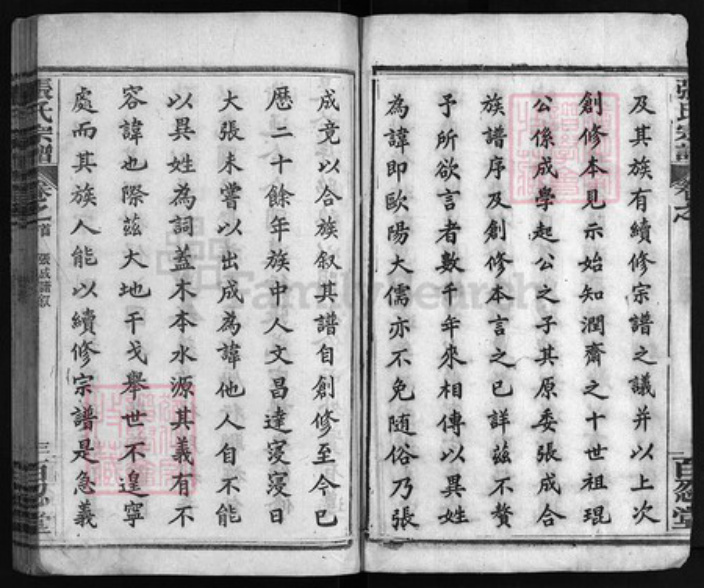 及其族有續修宗譜之議并以上次
創修本見示始知潤齋之十世祖琨
公係成學起公之子其原委張成合
族譜序及創修本言之已詳茲不贅
予所欲言者數千年來相傳以異姓
為諱即歐陽大儒亦不免随俗乃張
張氏宗譜 卷之首 張成譜叙 三 百忍堂
成竟以合族叙其譜自創修至今已
歷二十餘年族中人文昌達寖寖日
大張未嘗以出成為諱他人自不能
以異姓為詞蓋木本水源其義有不
容諱也際茲大地干戈舉世不遑寧
處而其族人能以續修宗譜是急義
張氏宗譜 卷之
百忍堂
FamilySearch